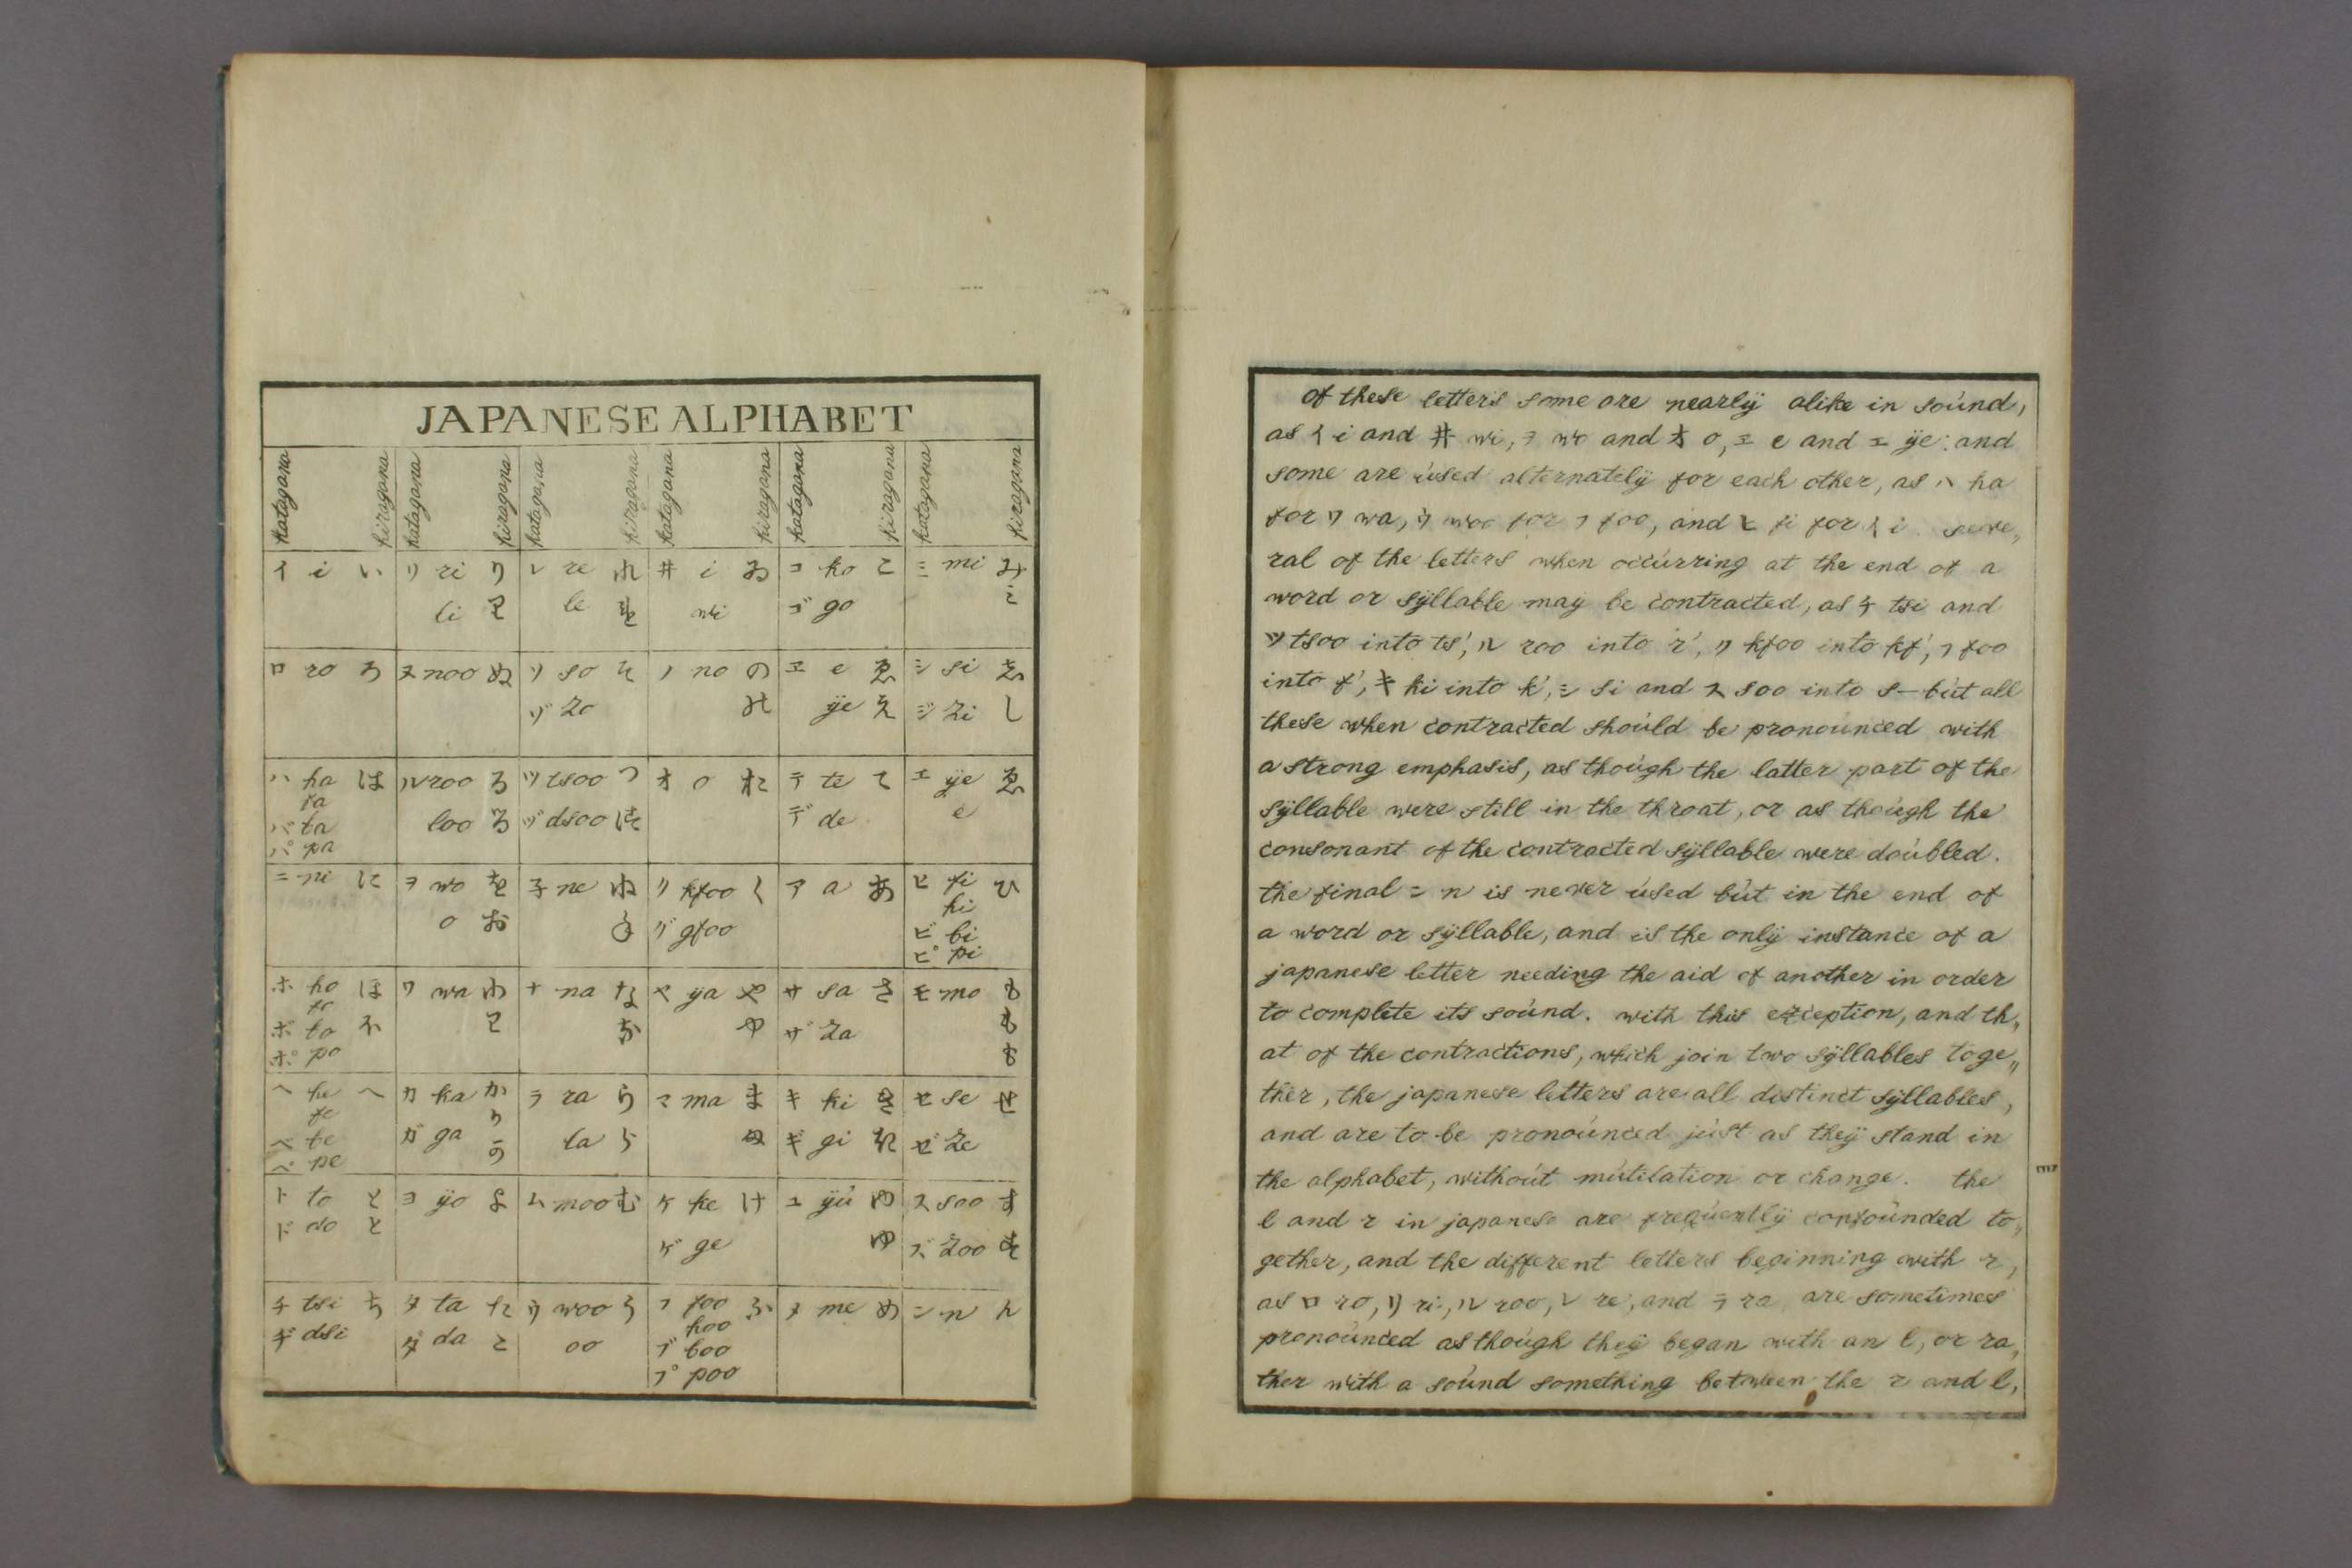 JAPANESE ALPHABET
katagana hiragana katagana hiragana katagana hiragana katagana hiragana katagana hiragana katagana hiragana
イ i い リ ri り レ re れ ヰ i ゐ コ ko こ ミ mi み
li le wi ゴ go
ロ ro ろ ヌ noo ぬ ソ so そ ノ no の ヱ e ゑ シ si
ゾ zo ye え ジ zi し
ハ ha は ル roo る ツ tsoo つ オ o テ te て エ ye ゑ
fa
バ ba loo る ヅ dsoo デ de e
パ pa
ニ ni に ヲ wo を 子 ne ね ク kfoo く ア a あ ヒ fi ひ
o お グ gfoo hi
ビ bi
ピ pi
ホ ho ほ ワ wa わ ナ na な ヤ ya や サ sa さ モ mo も
fo
ボ bo ザ za も
ポ po も
ヘ he へ カ ka か ラ ra ら マ ma ま キ ki き セ se せ
fe
ベ be ガ ga う la ら ギ gi ゼ ze
ペ pe
ト to と ヨ yo よ ム moo む ケ ke け ユ yu ゆ ス soo す
ド do と ゲ ge ゆ ズ zoo
チ tsi ち タ ta た ウ woo う フ foo ふ メ me め ン n ん
ヂ dsi ダ da oo hoo
ブ boo
プ poo
of these letters some are nearly alike in sound,
as イ i and ヰ wi, ヲ wo and オ o, ヱ e and エ ye: and
some are used alternately for each other, as ハ ha
for ワ wa, ウ woo for フ foo, and ヒ fi for イ i. seve„
ral of the letters when occurring at the end of a
word or syllable may be contracted, as チ tsi and
ツ tsoo into ts', ル roo into r', ク kfoo into kf', フ foo
into f', キ ki into k', シ si and ス soo into s— but all
these when contracted should be pronounced with
a strong emphasis, as though the latter part of the
syllable were still in the throat, or as though the
consonant of the contracted syllable were doubled.
the final ン n is never used but in the end of
a word or syllable, and is the only instance of a
japanese letter needing the aid of another in order
to complete its sound. with this exception, and th„
at of the contractions, which join two syllables toge„
ther, the japanese letters are all distinct syllables,
and are to be pronounced just as they stand in
the alphabet, without mutilation or change. the
l and r in japanese are frequently confounded to„
gether, and the different letters beginning with r,
as ロ ro, リ ri, ル roo, レ re, and ラ ra are sometimes
pronounced as though they began with an l, or ra„
ther with a sound something between the r and l,